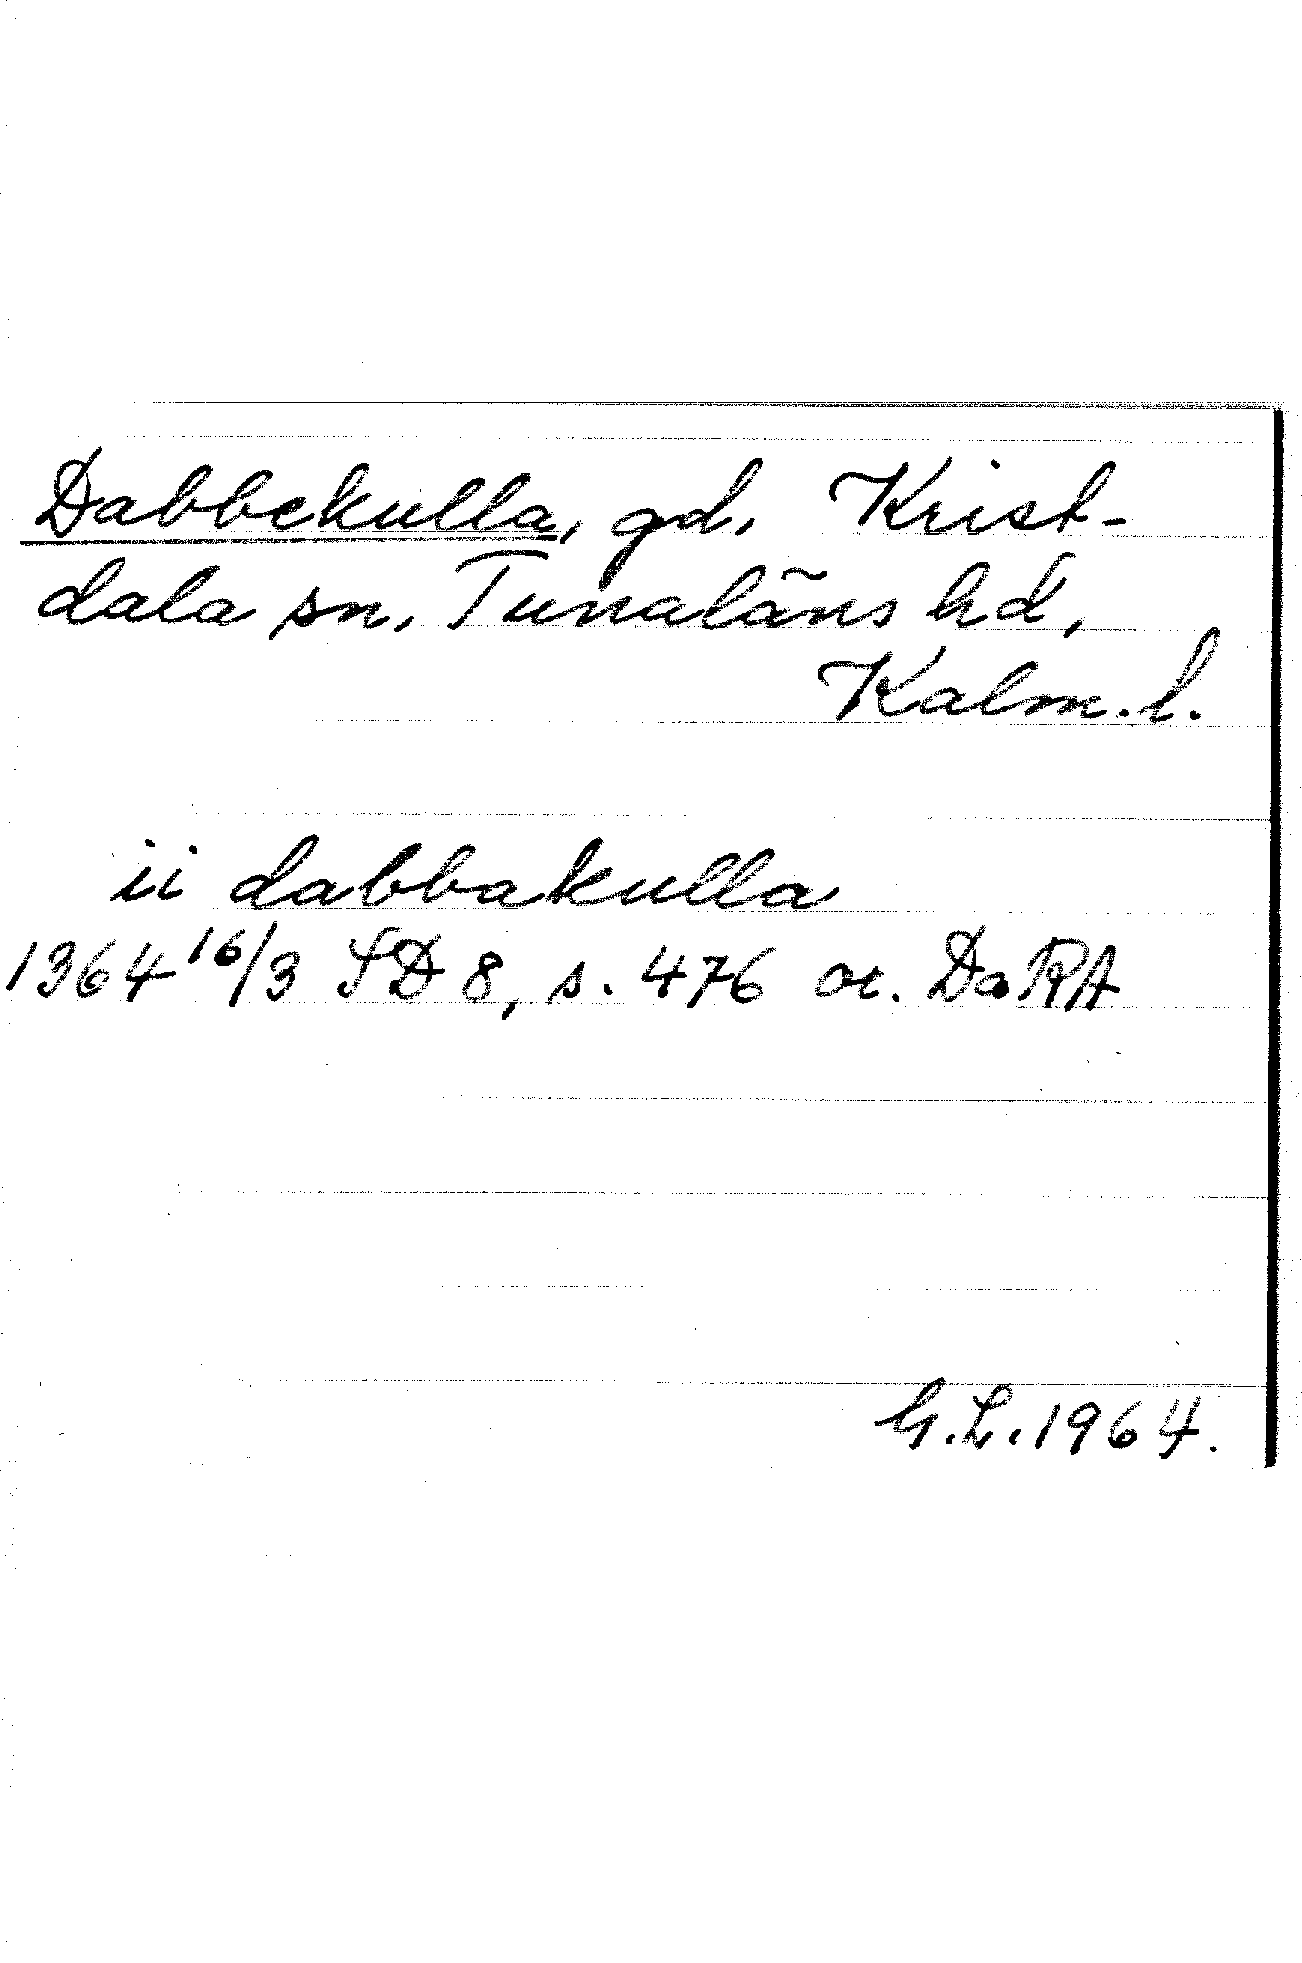 Dabbekulla, gd, Krist-
dala sn, Tunaläns hd,
Kalm. l.
ii dabbakulla
1364 16/3 SD 8, s. 476 or. Da RA
G.L. 1964.